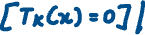 [Tₖ(x)=0]/